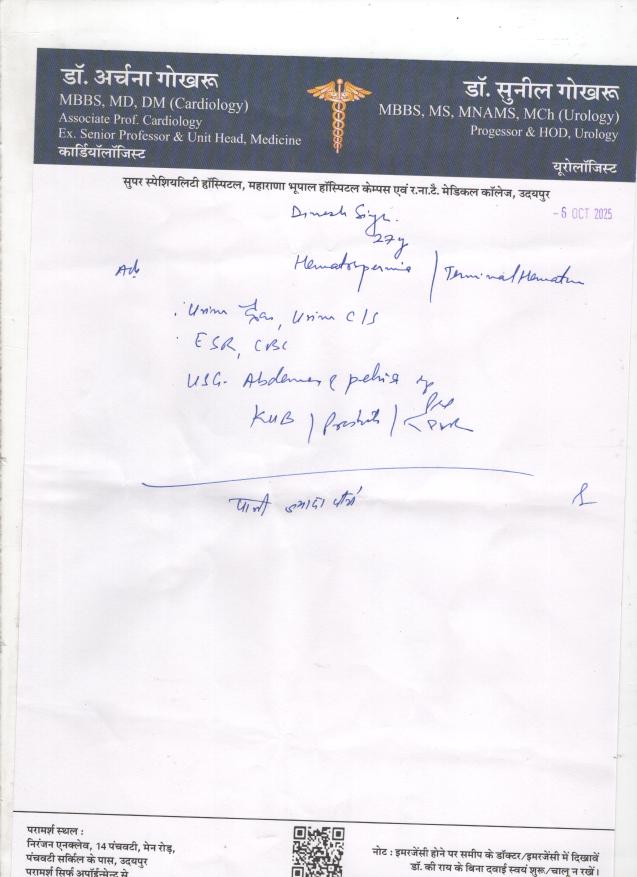 डॉ. अर्चना गोखरू
MBBS, MD, DM (Cardiology)
Associate Prof. Cardiology
Ex. Senior Professor & Unit Head, Medicine
कार्डियॉलॉजिस्ट
डॉ. सुनील गोखरू
MBBS, MS, MNAMS, MCh (Urology)
Progessor & HOD, Urology
यूरोलॉजिस्ट
सुपर स्पेशियलिटी हॉस्पिटल, महाराणा भूपाल हॉस्पिटल केम्पस एवं र.ना.टै. मेडिकल कॉलेज, उदयपुर
- 6 OCT 2025
Dinesh Singh.
27y
Hematospermia / Terminal Hematuria
Adv
Urine , Urine C/S
ESR, CBC
USG. Abdomen & pelvis
KUB / Prostate / Pre
PVR
पानी ज्यादा पीयें
परामर्श स्थल :
निरंजन एनक्लेव, 14 पंचवटी, मेन रोड़,
पंचवटी सर्किल के पास, उदयपुर
परामर्श सिर्फ अपॉईन्मेन्ट से
नोट : इमरजेंसी होने पर समीप के डॉक्टर/इमरजेंसी में दिखावें
डॉ. की राय के बिना दवाई स्वयं शुरू/चालू न रखें।